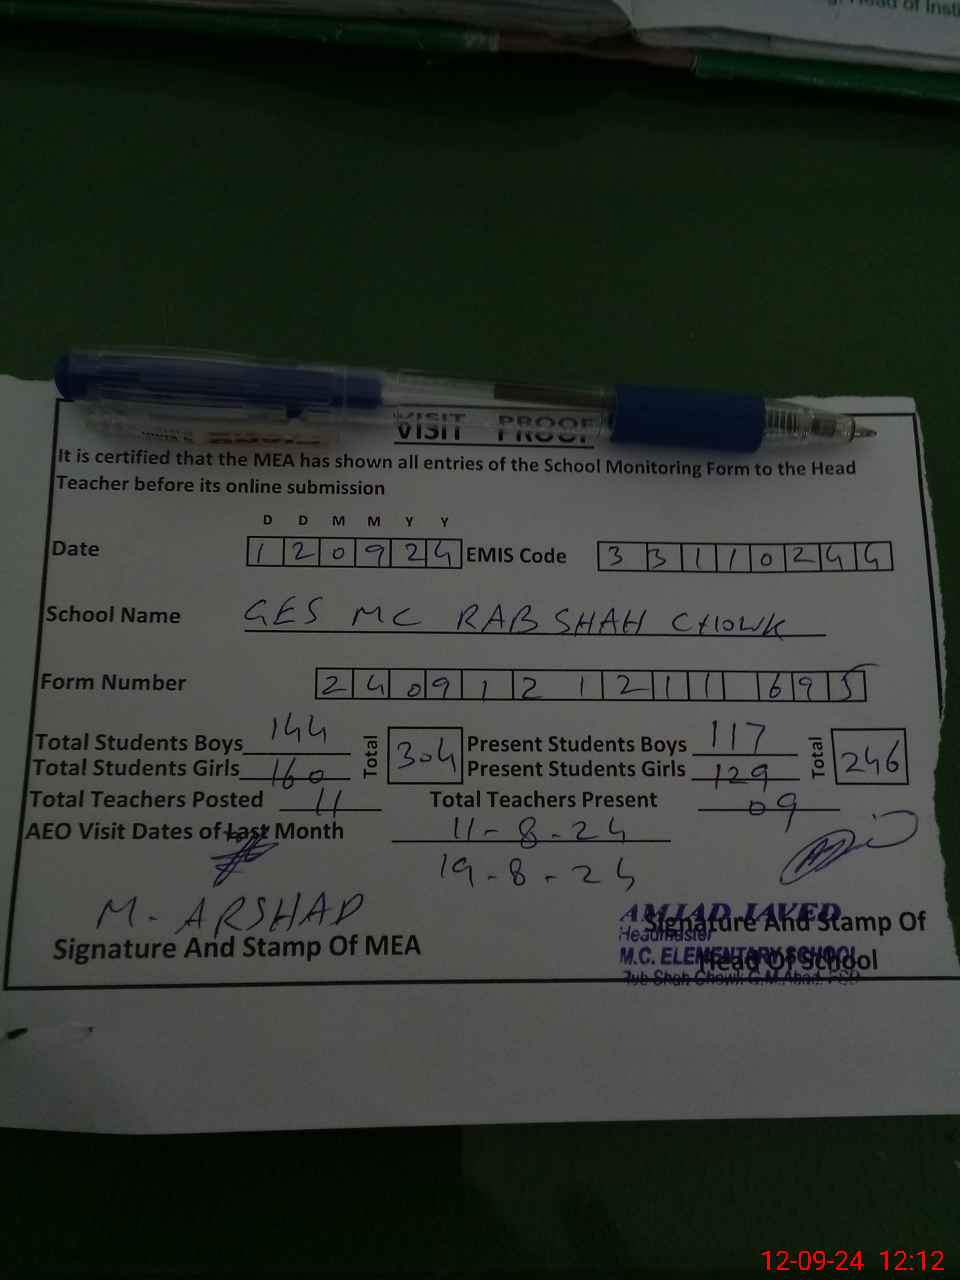 Head of Insti
VISIT PROOF
It is certified that the MEA has shown all entries of the School Monitoring Form to the Head
Teacher before its online submission
D D M M Y Y
Date 1 2 0 9 2 4 EMIS Code 3 3 1 1 0 2 4 4
School Name GES MC RAB SHAH CHOWK
Form Number 2 4 0 9 1 2 1 2 1 1 6 9 5
Total Students Boys 144 Total 304 Present Students Boys 117 Total 246
Total Students Girls 160 Present Students Girls 129
Total Teachers Posted 11 Total Teachers Present 09
AEO Visit Dates of Last Month 11-8-24
19-8-24
M. ARSHAD
Signature And Stamp Of MEA
AMJAD JAVED
Signature And Stamp Of
Headmaster
M.C. ELEMENTARY SCHOOL
Head Of School
Shah Chowk G.M.Abad, FSD
12-09-24 12:12